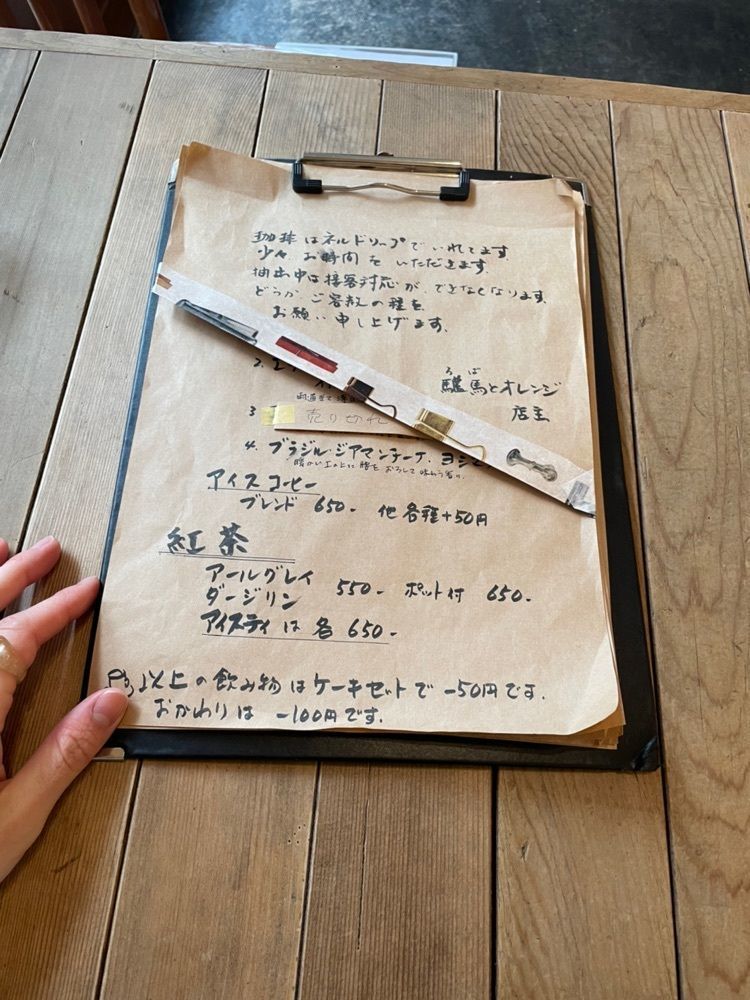 珈琲はネルドリップでいれてます
少々お時間をいただきます
抽出中は接客対応ができなくなります
どうかご容赦の程を
お願い申し上げます.
ろば
驢馬とオレンジ
店主
2.
3
売り切れ
4. ブラジル・ジアマンチーナ.
アイスコーヒー
ブレンド 650- 他各種+50円
紅茶
アールグレイ
ダージリン 550- ポット付 650-
アイスティは各 650-
以上の飲み物はケーキセットで-50円です.
おかわりは -100円です.